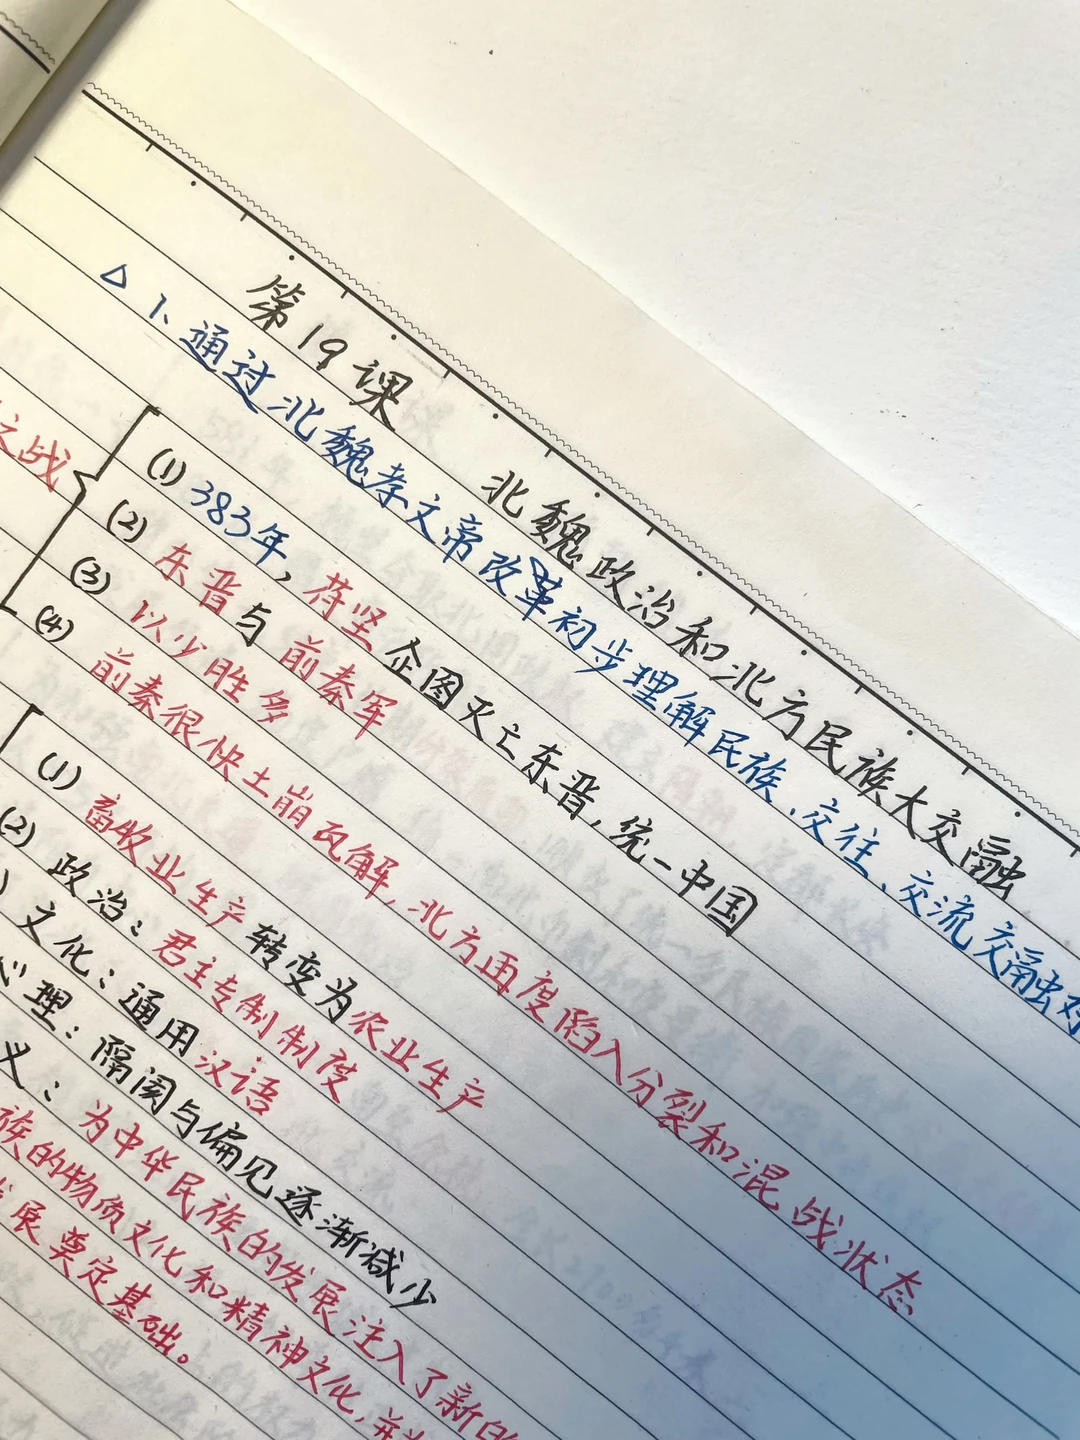 第19课 北魏政治和北方民族大交融
△ 1、通过北魏孝文帝改革初步理解民族、交往、交流交融对
之战
(1) 383年,苻坚企图灭亡东晋,统一中国
(2) 东晋与前秦军
(3) 以少胜多
(4) 前秦很快土崩瓦解,北方再度陷入分裂和混战状态
(1) 畜牧业生产转变为农业生产
(2) 政治:君主专制制度
) 文化:通用汉语
心理:隔阂与偏见逐渐减少
义:为中华民族的发展注入了新的
族的物质文化和精神文化,并为
发展奠定基础。